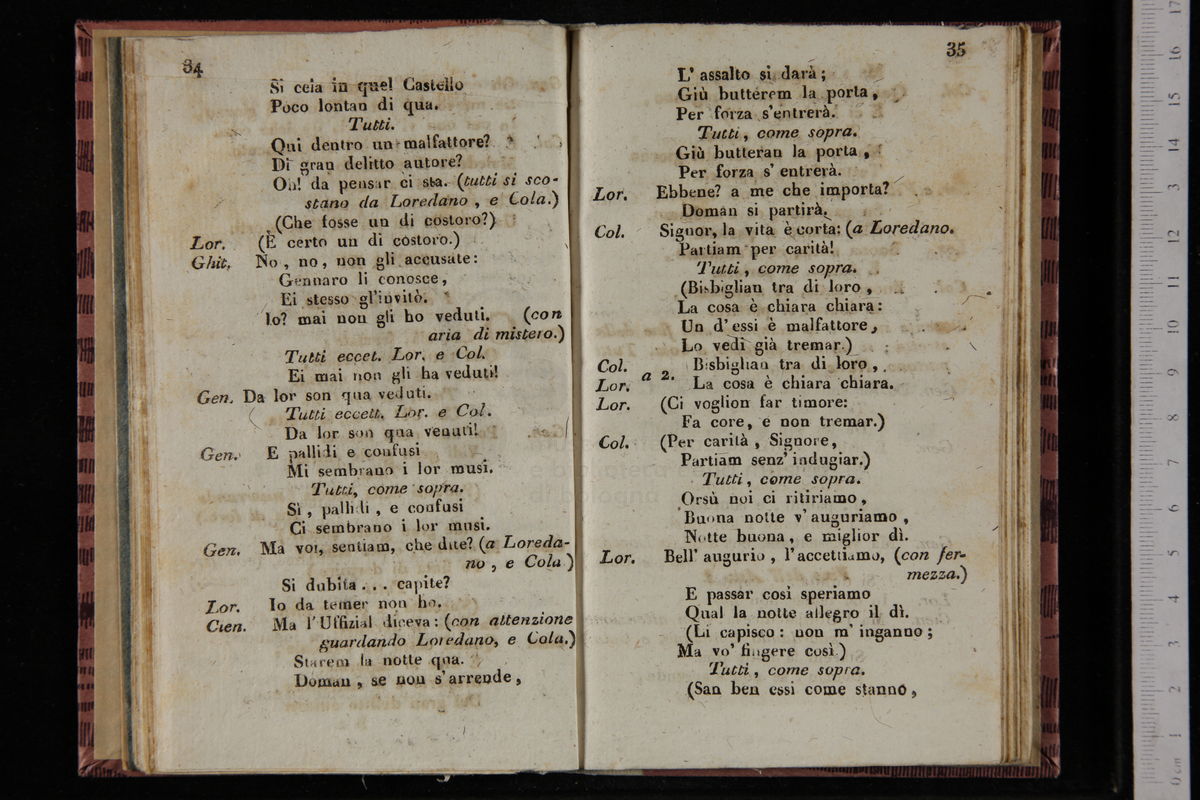 34
Si cela in quel Castello
Poco lontan di qua.
Tutti.
Qui dentro un malfattore?
Di gran delitto autore?
Oh! da pensar ci sta. (tutti si sco-
stano da Loredano, e Cola.)
(Che fosse un di costoro?)
Lor. (È certo un di costoro.)
Ghit. No, no, non gli accusate:
Gennaro li conosce,
Ei stesso gl'invitò.
Io? mai non gli ho veduti. (con
aria di mistero.)
Tutti eccet. Lor. e Col.
Ei mai non gli ha veduti!
Gen. Da lor son qua veduti.
Tutti eccett. Lor. e Col.
Da lor son qua venuti!
Gen. E pallidi e confusi
Mi sembrano i lor musi.
Tutti, come sopra.
Sì, pallidi, e confusi
Ci sembrano i lor musi.
Gen. Ma voi, sentiam, che dite? (a Loreda-
no, e Cola)
Si dubita... capite?
Lor. Io da temer non ho.
Cien. Ma l'Uffizial diceva: (con attenzione
guardando Loredano, e Cola.)
Starem la notte qua.
Doman, se non s'arrende,
35
L' assalto si darà;
Giù butterem la porta,
Per forza s'entrerà.
Tutti, come sopra.
Giù butteran la porta,
Per forza s' entrerà.
Lor. Ebbene? a me che importa?
Doman si partirà.
Col. Signor, la vita è corta: (a Loredano.
Partiam per carità!
Tutti, come sopra.
(Bisbiglian tra di loro,
La cosa è chiara chiara:
Un d' essi è malfattore,
Lo vedi già tremar.)
Col. Bisbiglian tra di loro,
a 2.
Lor. La cosa è chiara chiara.
Lor. (Ci voglion far timore:
Fa core, e non tremar.)
Col. (Per carità, Signore,
Partiam senz' indugiar.)
Tutti, come sopra.
Orsù noi ci ritiriamo,
Buona notte v' auguriamo,
Notte buona, e miglior dì.
Lor. Bell' augurio, l'accettiamo, (con fer-
mezza.)
E passar così speriamo
Qual la notte allegro il dì.
(Li capisco: non m' inganno;
Ma vo' fingere così.)
Tutti, come sopra.
(San ben essi come stanno,